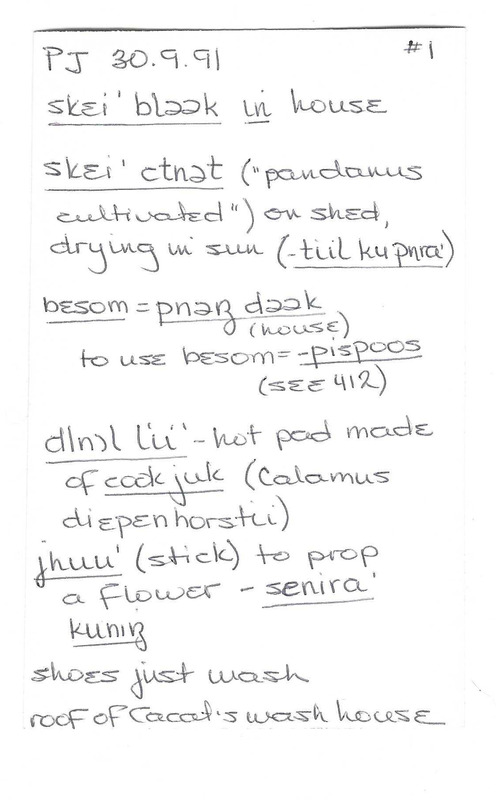 PJ 30.9.91 #1
skɛi' bləək in house
skɛi' ctnət ("pandanus
cultivated") on shed,
drying in sun (-tiil ku pnra')
bɛsom = pnəŋ dəək
(house)
to use bɛsom = -pispoos
(sɛɛ 412)
dlnɔl lii' - hot pad made
of cɔɔk juk (Calamus
diepenhorstii)
jhuu' (stick) to prop
a flower - senira'
kuniŋ
shoes just wash
roof of Cacat's wash house